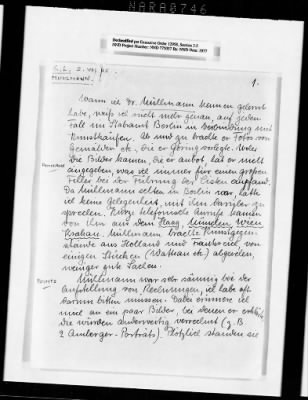 NARA0746
Declassified per Executive Order 12958, Section 3.5
NND Project Number: NND 775057 By: NND Date: 1977
MÜHLMANN.
1.
Wann ich Dr. Mühlmann kennen gelernt
habe, weiß ich nicht mehr genau, auf jeden
Fall im Stabsamt Berlin in Verbindung mit
Kunstkäufen. Ab und zu brachte er Fotos von
Gemälden etc., die er Göring vorlegte. Woher
die Bilder kamen, die er anbot, hat er nicht
angegeben, was ich immer für einen großen
Fehler bei der Führung der Listen empfand.
Da Mühlmann selten in Berlin war, hatte
ich keine Gelegenheit, mit ihm darüber zu
sprechen. Kurze telefonische Anrufe kamen
von ihm aus dem Haag, München, Wien
Krakau. Mühlmann brachte Kunstgegen-
stände aus Holland und Frankreich, von
einigen Stücken (Watteau etc.) abgesehen,
weniger gute Sachen.
Mühlmann war sehr säumig bei der
Aufstellung von Rechnungen, ich habe oft
darum bitten müssen. Dabei erinnere ich
mich an ein paar Bilder, bei denen er erklärte,
die würden anderweitig verrechnet (z. B.
2 Amberger-Porträts). Plötzlich standen sie